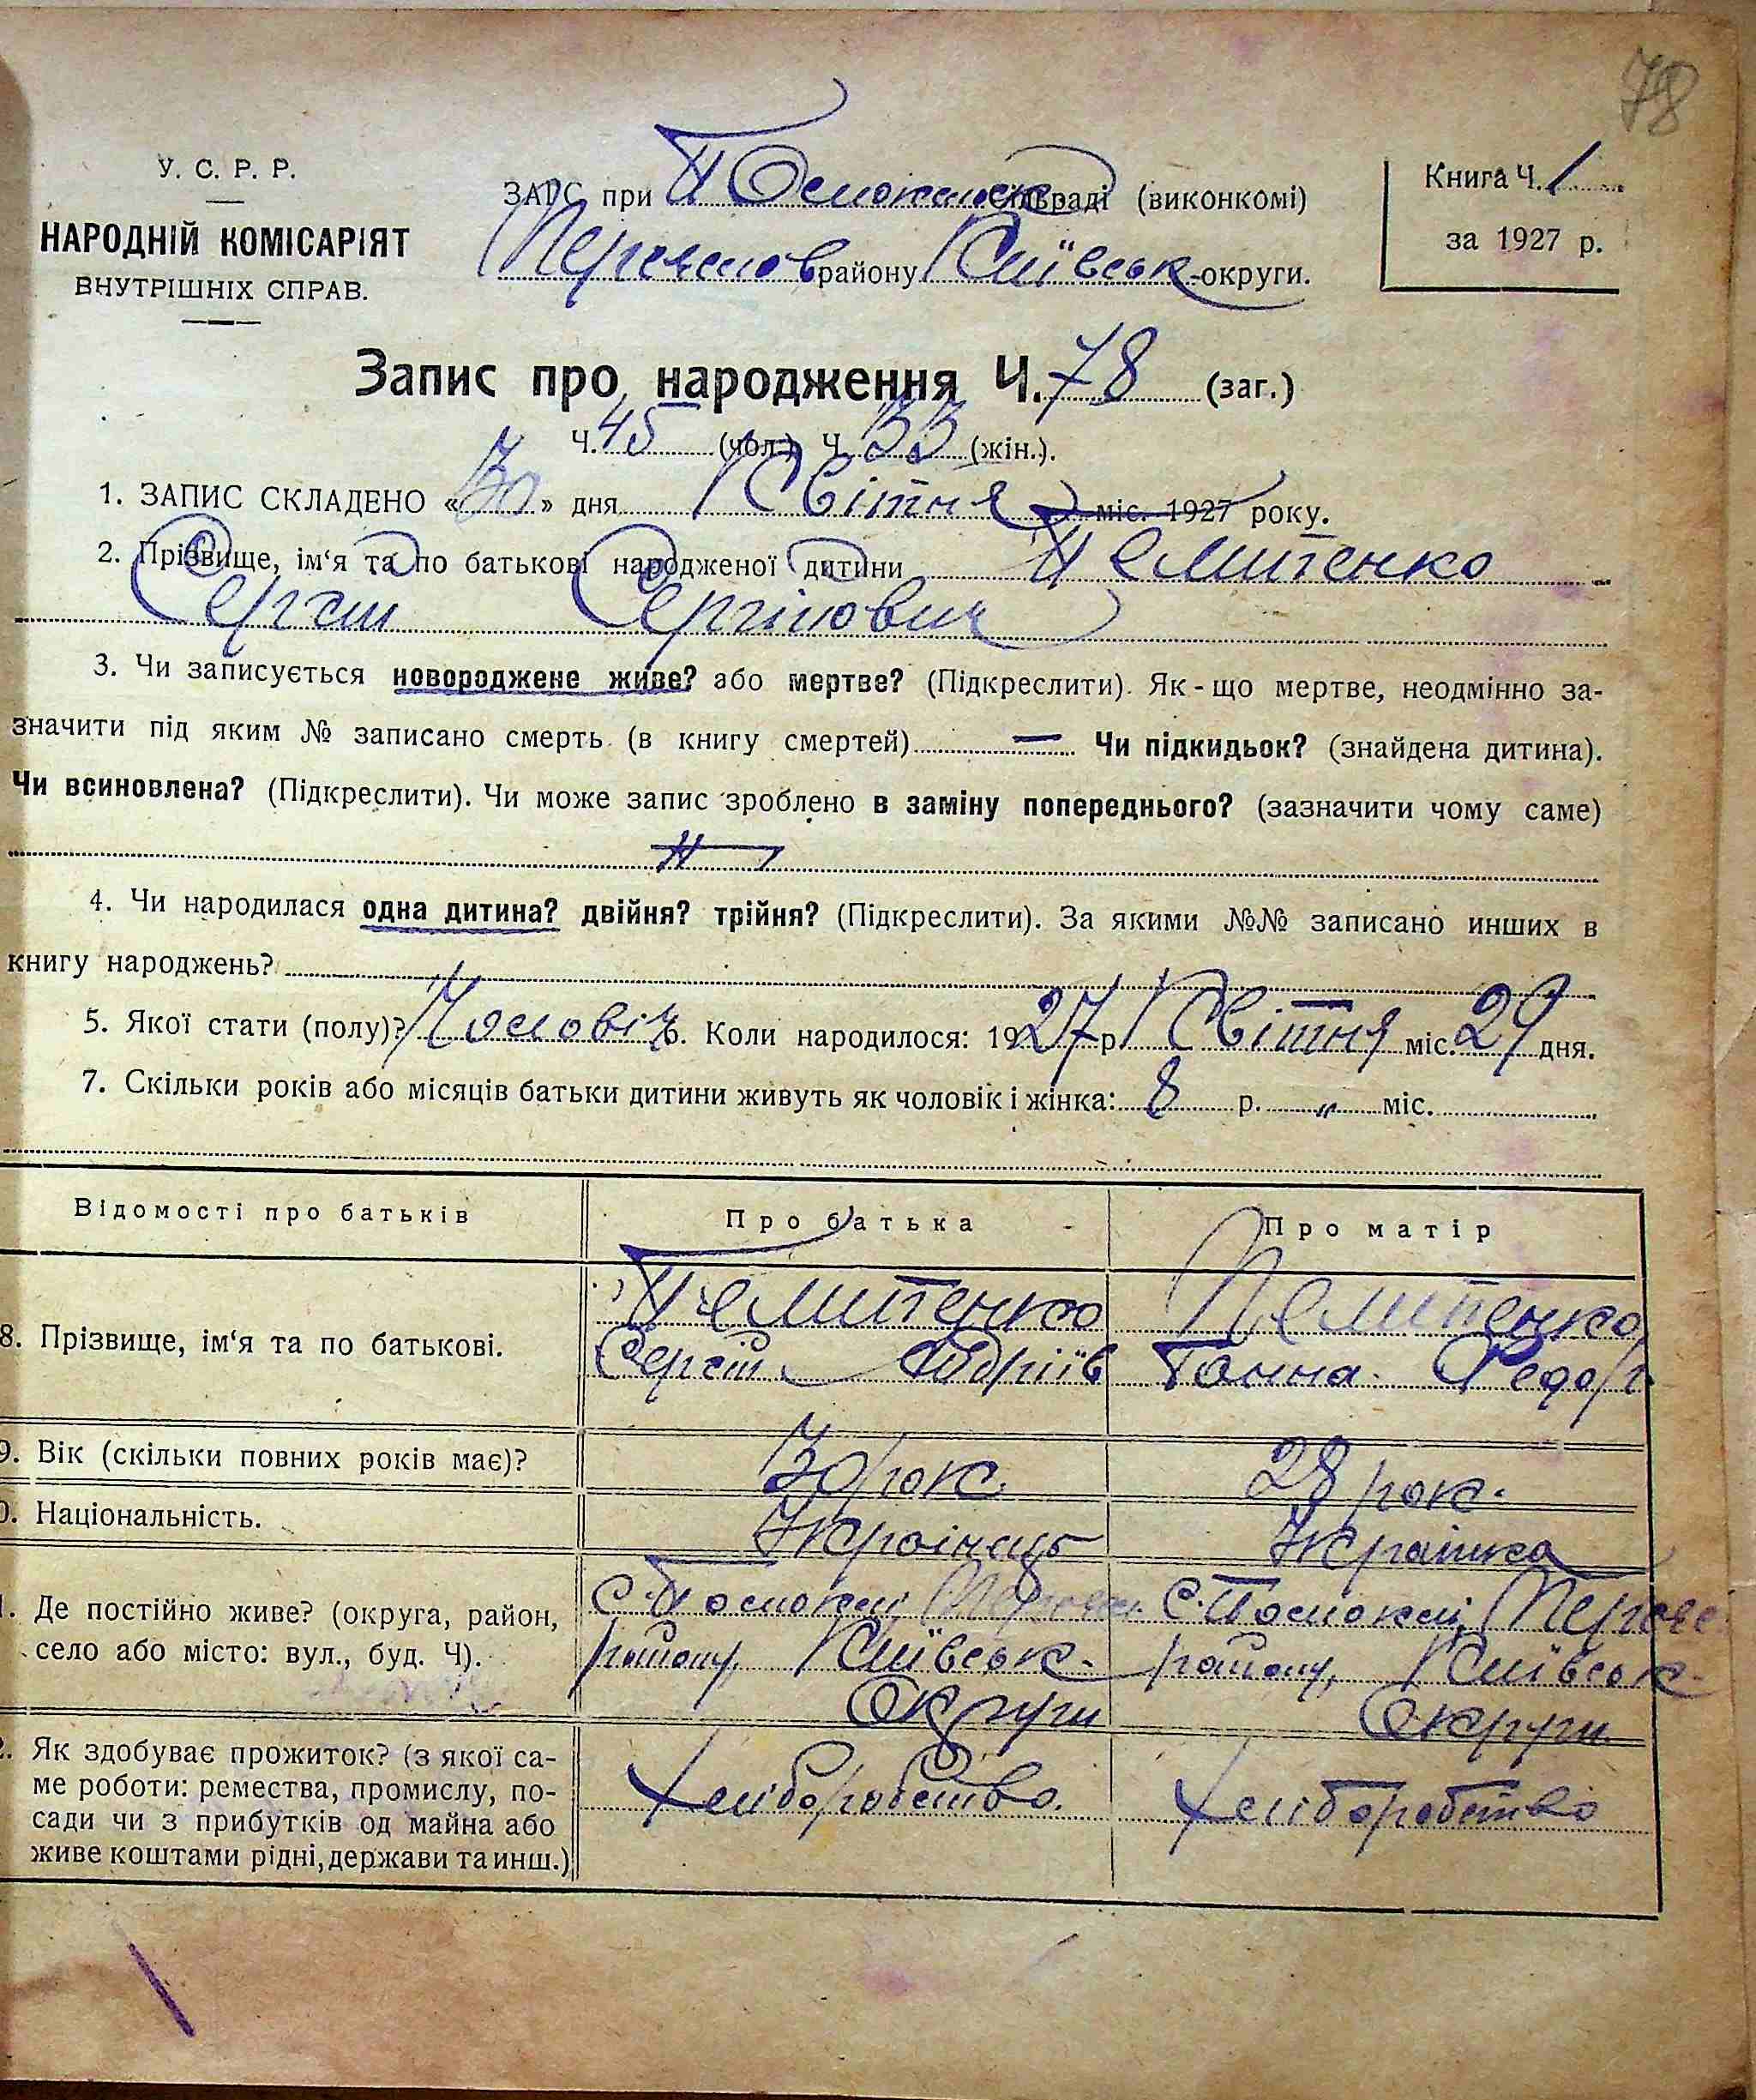 78
У. С. Р. Р.
НАРОДНІЙ КОМІСАРІЯТ
ВНУТРІШНІХ СПРАВ.
ЗАГС при сільраді (виконкомі)
району Київськ округи.
Книга Ч. 1
за 1927 р.
Запис про народження Ч. 78 (заг.)
Ч. 45 (чол.) Ч. 33 (жін.).
1. ЗАПИС СКЛАДЕНО «30» дня Квітня міс. 1927 року.
2. Прізвище, ім‘я та по батькові народженої дитини
Сергій Сергійович
3. Чи записується новороджене живе? або мертве? (Підкреслити). Як-що мертве, неодмінно за-
значити під яким № записано смерть (в книгу смертей) — Чи підкидьок? (знайдена дитина).
Чи всиновлена? (Підкреслити). Чи може запис зроблено в заміну попереднього? (зазначити чому саме)
4. Чи народилася одна дитина? двійня? трійня? (Підкреслити). За якими №№ записано инших в
книгу народжень?
5. Якої стати (полу)? Чоловіч 6. Коли народилося: 1927 р. Квітня міс. 29 дня.
7. Скільки років або місяців батьки дитини живуть як чоловік і жінка: 8 р. „ міс.
Відомості про батьків
Про батька
Про матір
8. Прізвище, ім‘я та по батькові.
Сергій Андріїв
Ганна Федор
9. Вік (скільки повних років має)?
30 рок.
28 рок.
Національність.
Українець
Українка
Де постійно живе? (округа, район,
село або місто: вул., буд. Ч).
району, Київськ.
Округи
району, Київськ.
Округи
Як здобуває прожиток? (з якої са-
ме роботи: ремества, промислу, по-
сади чи з прибутків од майна або
живе коштами рідні, держави та инш.)
Хліборобство.
Хліборобство